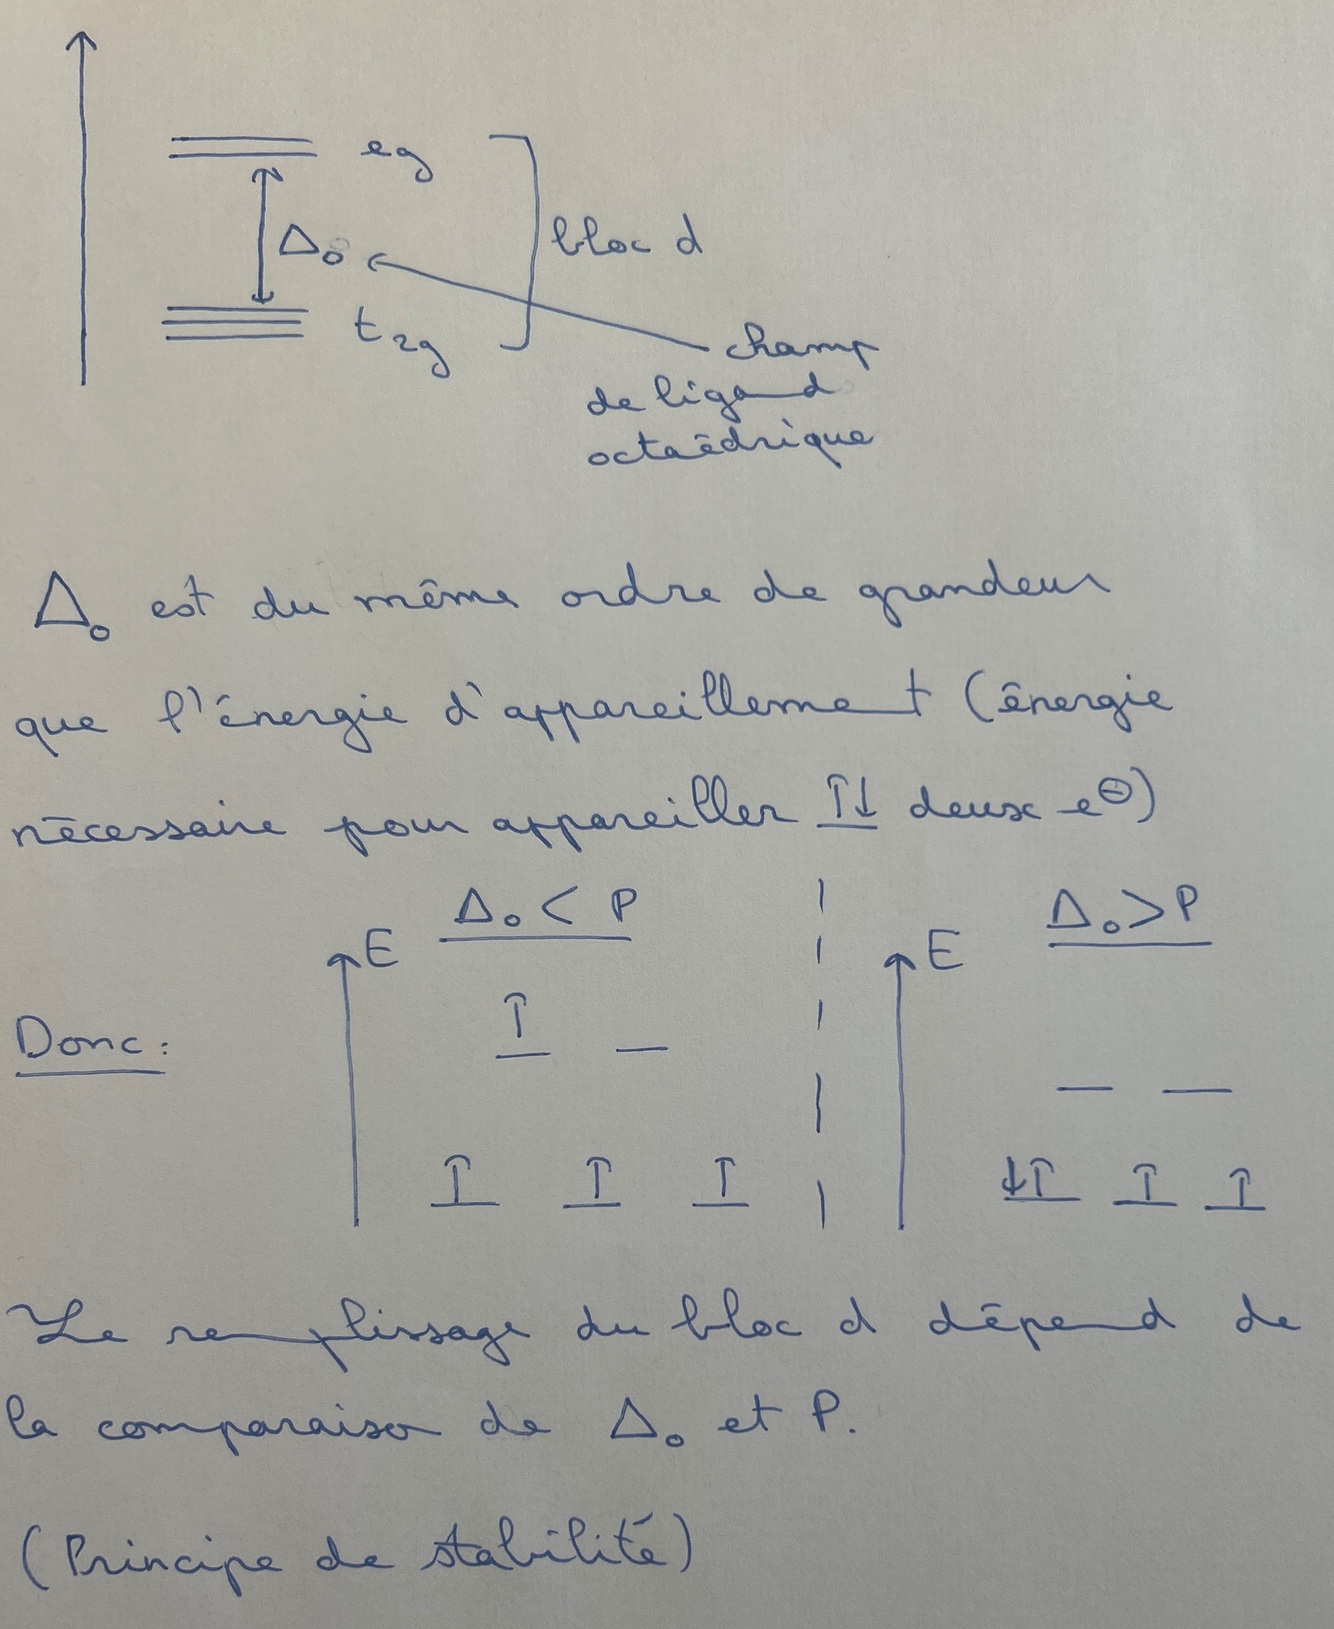 eg
Δ₀
bloc d
t₂g
champ
de ligand
octaédrique
Δ₀ est du même ordre de grandeur
que l'énergie d'appareillement (énergie
nécessaire pour appareiller ↑↓ deux e⊖)
Δ₀ < P
Δ₀ > P
E
E
Donc :
↑
↑ ↑ ↑
↓↑ ↑ ↑
Le remplissage du bloc d dépend de
la comparaison de Δ₀ et P.
(Principe de stabilité)